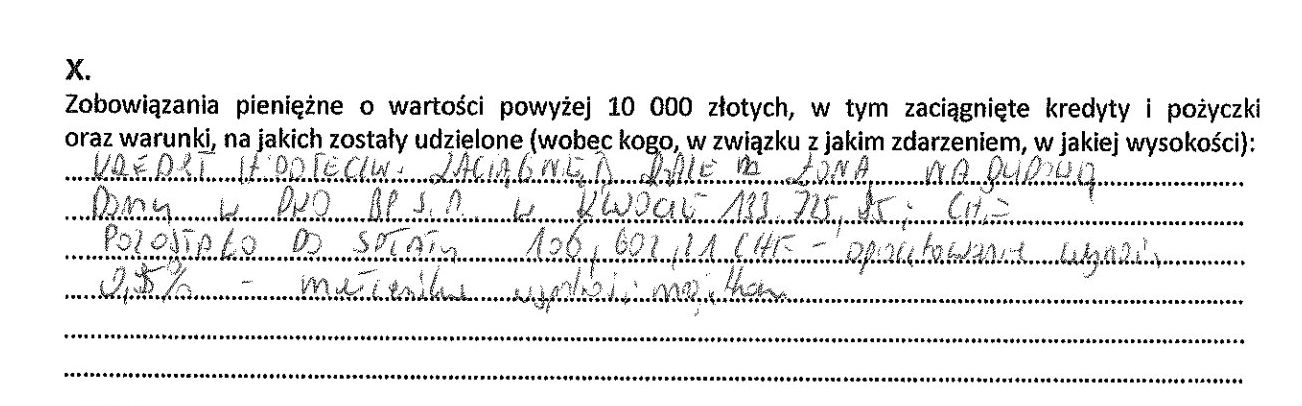 X.
Zobowiązania pieniężne o wartości powyżej 10 000 złotych, w tym zaciągnięte kredyty i pożyczki
oraz warunki, na jakich zostały udzielone (wobec kogo, w związku z jakim zdarzeniem, w jakiej wysokości):
KREDYT HIPOTECZNY ŻONĄ NA BUDOWĘ
DOMU W BP S.A. W KWOCIE 133.725,95 CHF
POZOSTAŁO DO SPŁATY 106,602,21 CHF - oprocentowanie wynosi
- małżeńska wspólność majątkowa